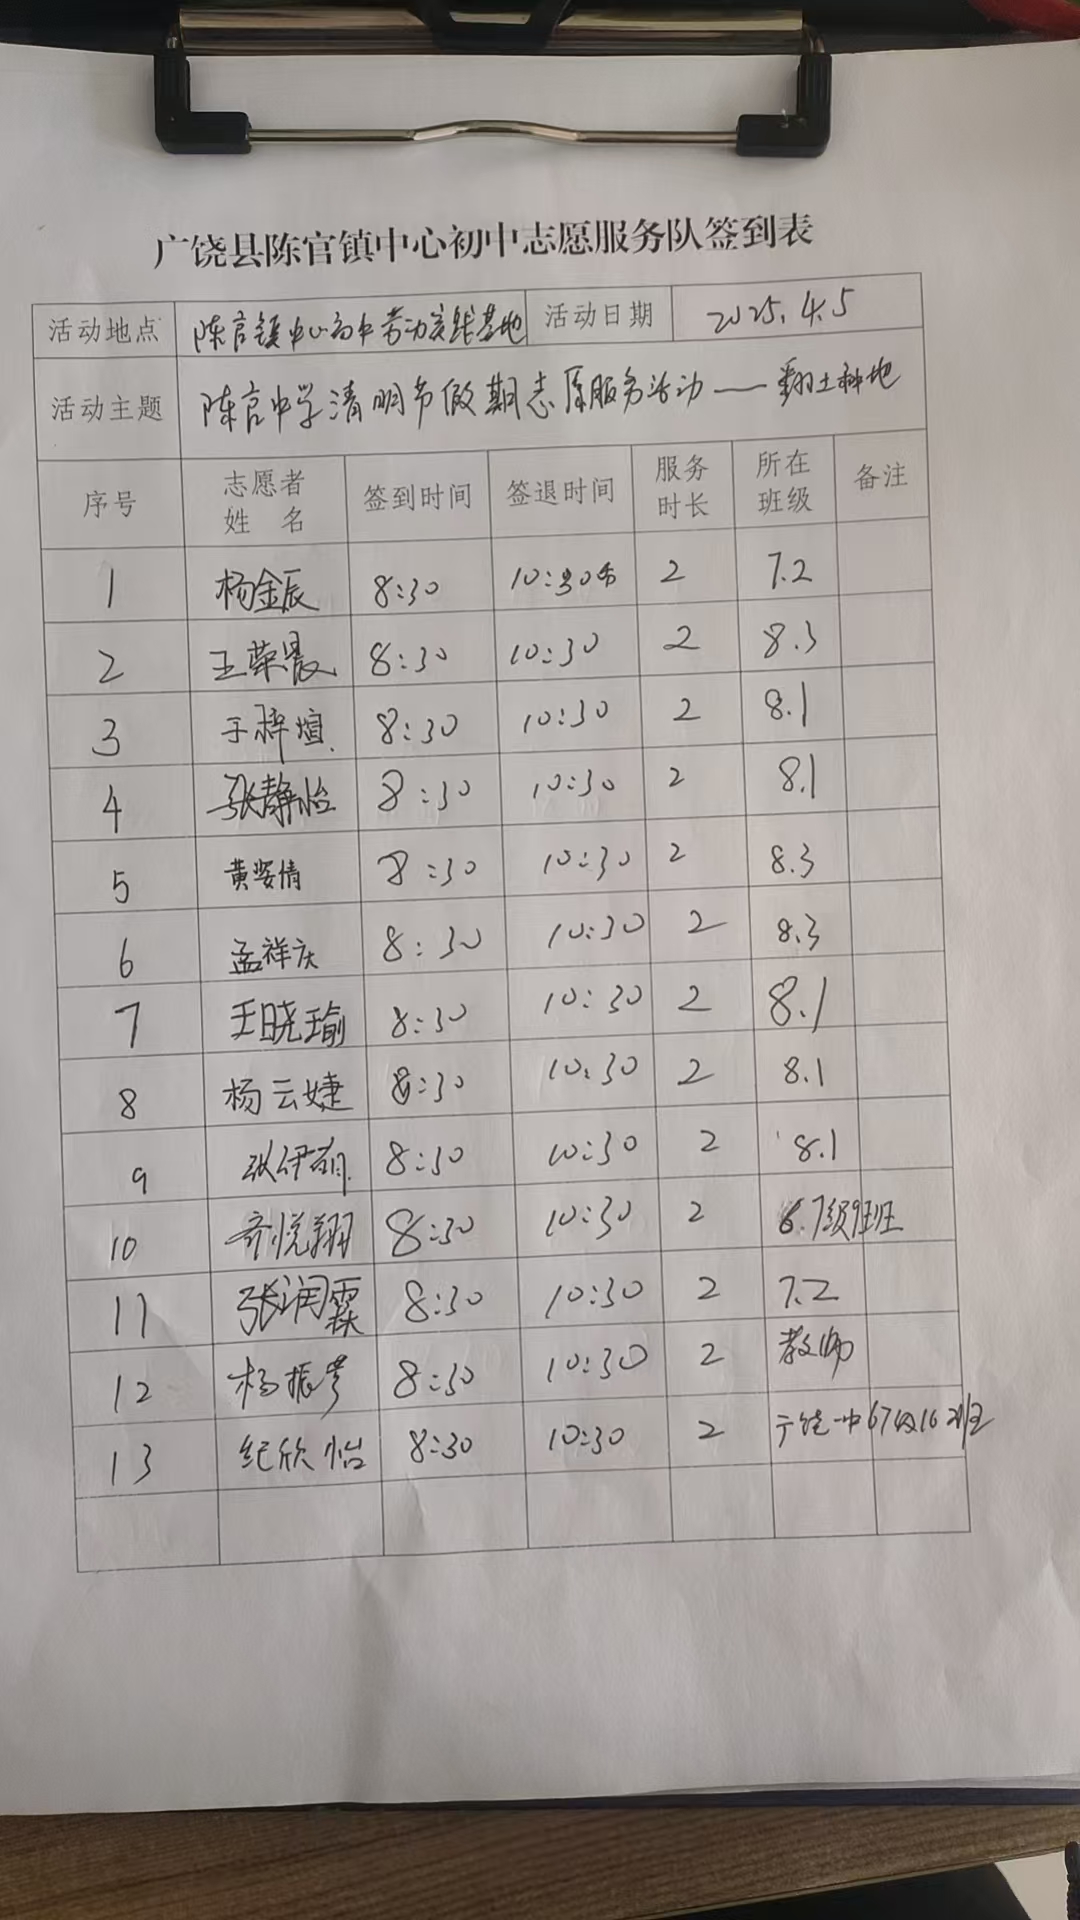 广饶县陈官镇中心初中志愿服务队签到表
活动地点 陈官镇中心初中劳动实践基地 活动日期 2025.4.5
活动主题 陈官中学清明节假期志愿服务活动——翻土种地
序号 志愿者姓名 签到时间 签退时间 服务时长 所在班级 备注
1 杨金辰 8:30 10:30 2 7.2
2 王荣晨 8:30 10:30 2 8.3
3 于梓煊 8:30 10:30 2 8.1
4 张静怡 8:30 10:30 2 8.1
5 黄姿倩 8:30 10:30 2 8.3
6 孟祥庆 8:30 10:30 2 8.3
7 王晓瑜 8:30 10:30 2 8.1
8 杨云婕 8:30 10:30 2 8.1
9 张伊萌 8:30 10:30 2 8.1
10 齐悦翔 8:30 10:30 2 7级9班
11 张润霖 8:30 10:30 2 7.2
12 杨振 8:30 10:30 2 教师
13 纪欣怡 8:30 10:30 2 广饶一中67级16班